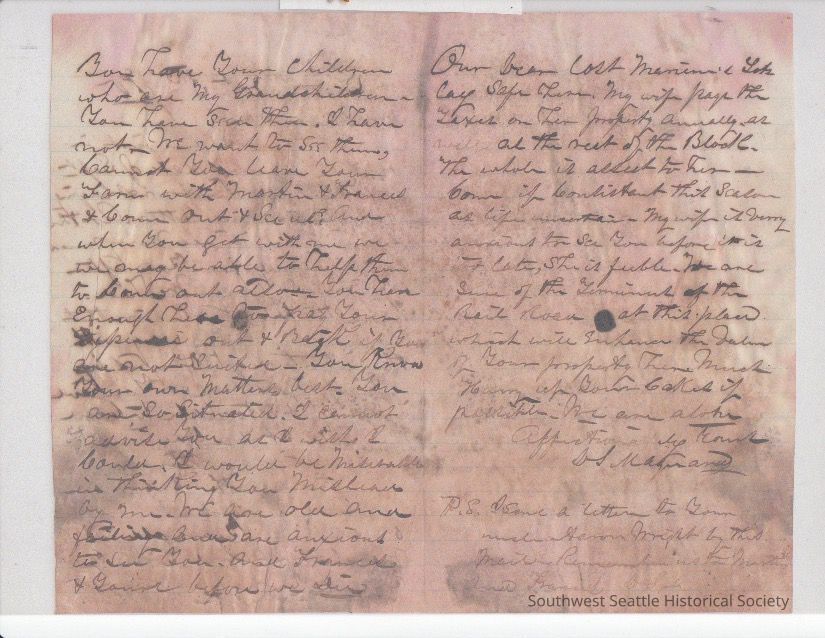 You have Your Children
who are My Grandchildren -
You have seen them. I have
not - We want to See them,
Cannot You leave Your
Farm with Martin & Frances
& Come out & See us? And
when You get with me we
we may be able to help them
to Come out also - You have
Enough there to pay Your
Expenses out & back if You
are not Suited - You Know
Your own Matters best. You
are So Situated. I cannot
advise You as I wish I
Could. I would be Miserable
in thinking You Mislead
by me. We are old and
failing and are anxious
to See You. And Frances
& Yours before we Die
Our Dear Lost
lay Safe here. My wife pays the
Taxes on Her property annually as
well as the rest of the Block.
The whole is assest to her -
Come if Consistant this Season
as life uncertain - My wife is verry
anxious to See You before it is
late, She is feeble. We are
Sure of the Terminus of the
Rail Road at this place
which will Enhance the Value
of Your property here Much
Hurry up Your Cakes if
possible. We are alone
Affectionately Yours
D S Maynard
P.S. I Send a letter to Your
uncle Aaron Wright by this
Mail. Remember us to
and
Southwest Seattle Historical Society